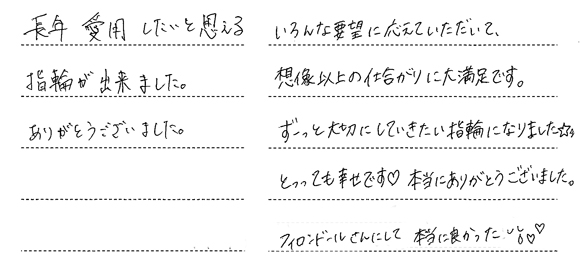 長年 愛用 したいと思える
指輪が出来ました。
ありがとうございました。
いろんな要望に応えていただいて、
想像以上の仕合がりに大満足です。
ずーっと大切にしていきたい指輪になりました☆彡
とっっても幸せです♡ 本当にありがとうございました。
フィロンドールさんにして 本当に良かった ♡♡